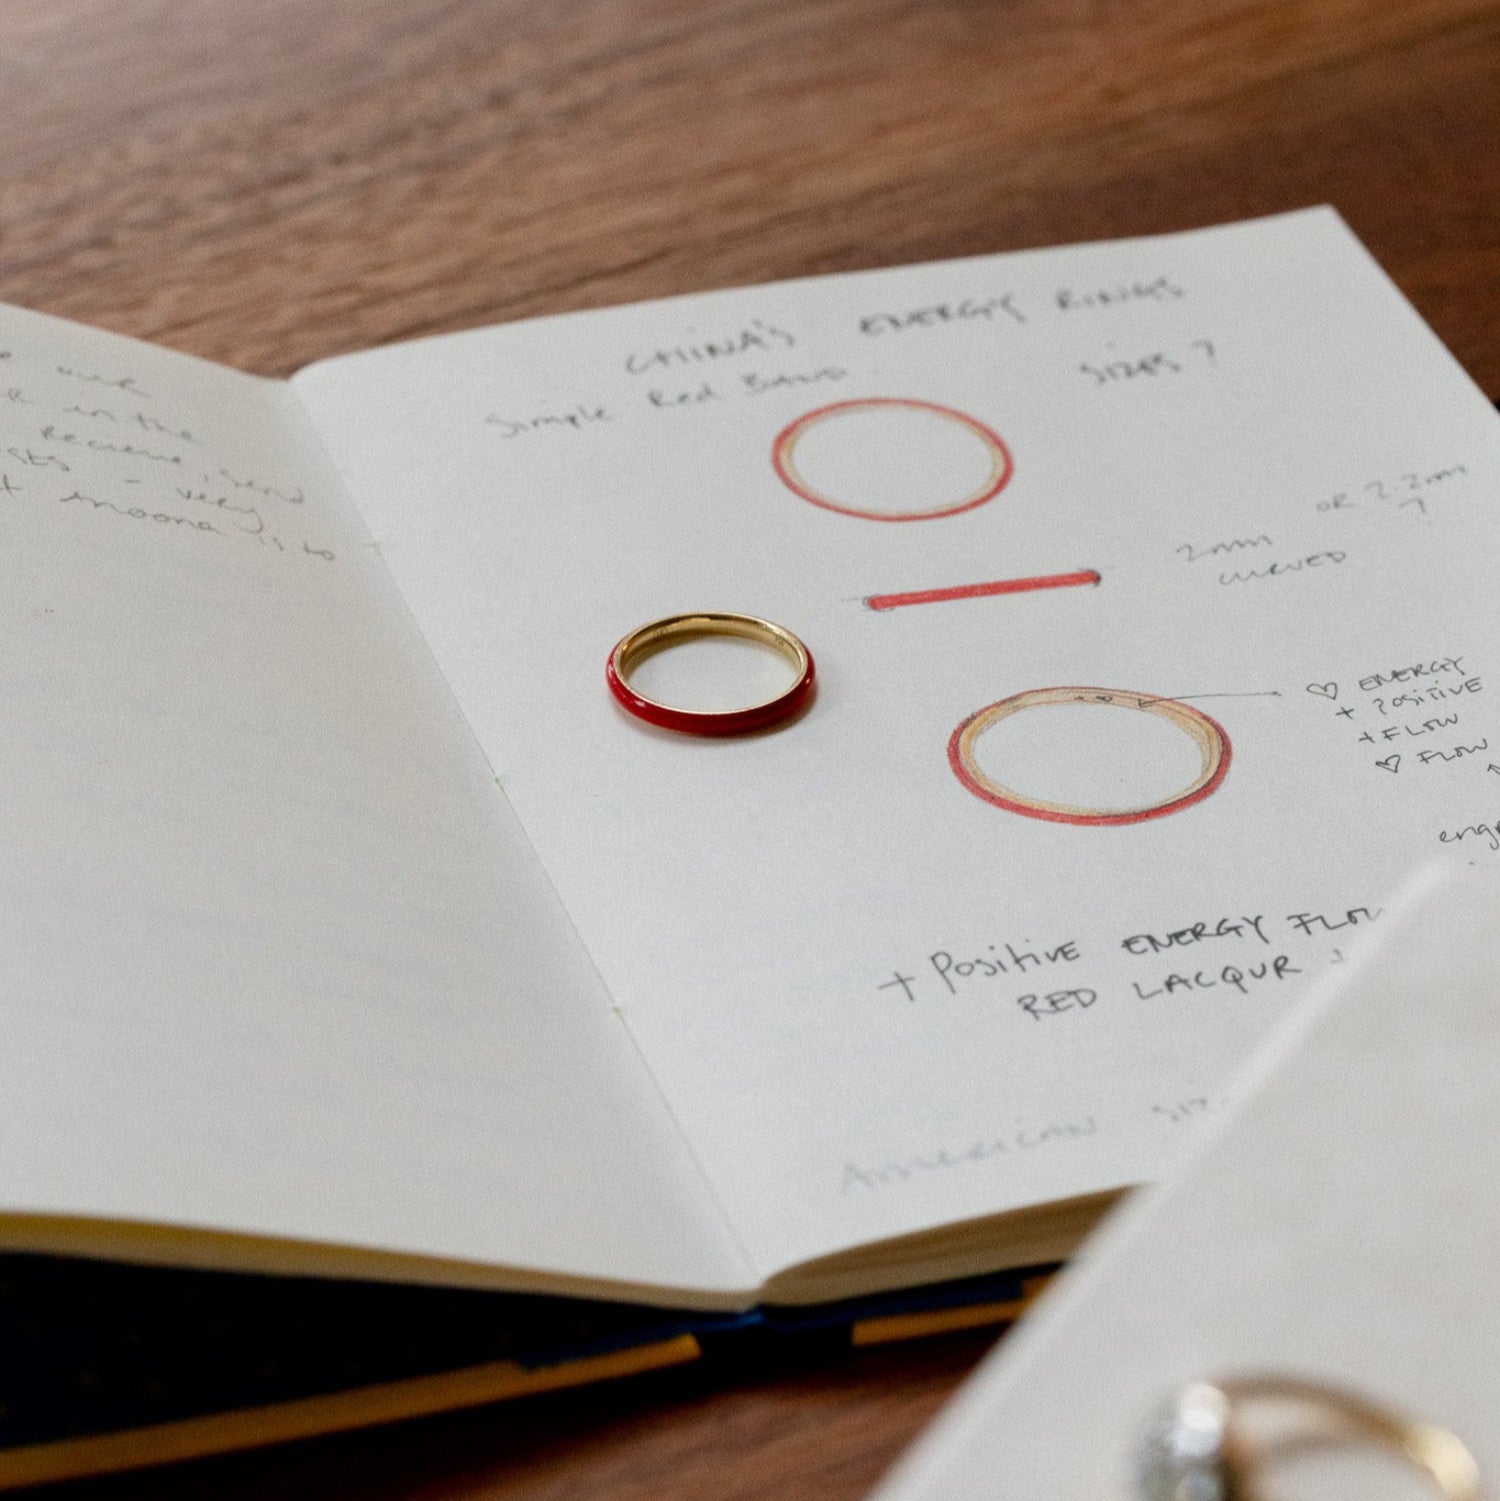 in the
recieve, send
- very
anoona is to
CHINA'S ENERGY RINGS
Simple Red Band
SIZES ?
OR 2.2mm
?
2mm
CURVED
♡ ENERGY
+ POSITIVE
+ FLOW
♡ FLOW
+ Positive ENERGY FLOW
RED LACQUR
American